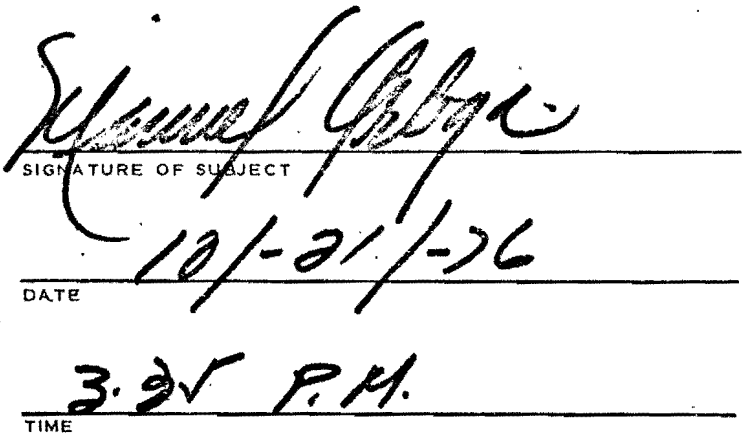 SIGNATURE OF SUBJECT
12/-21/-76
DATE
3.35 P.M.
TIME